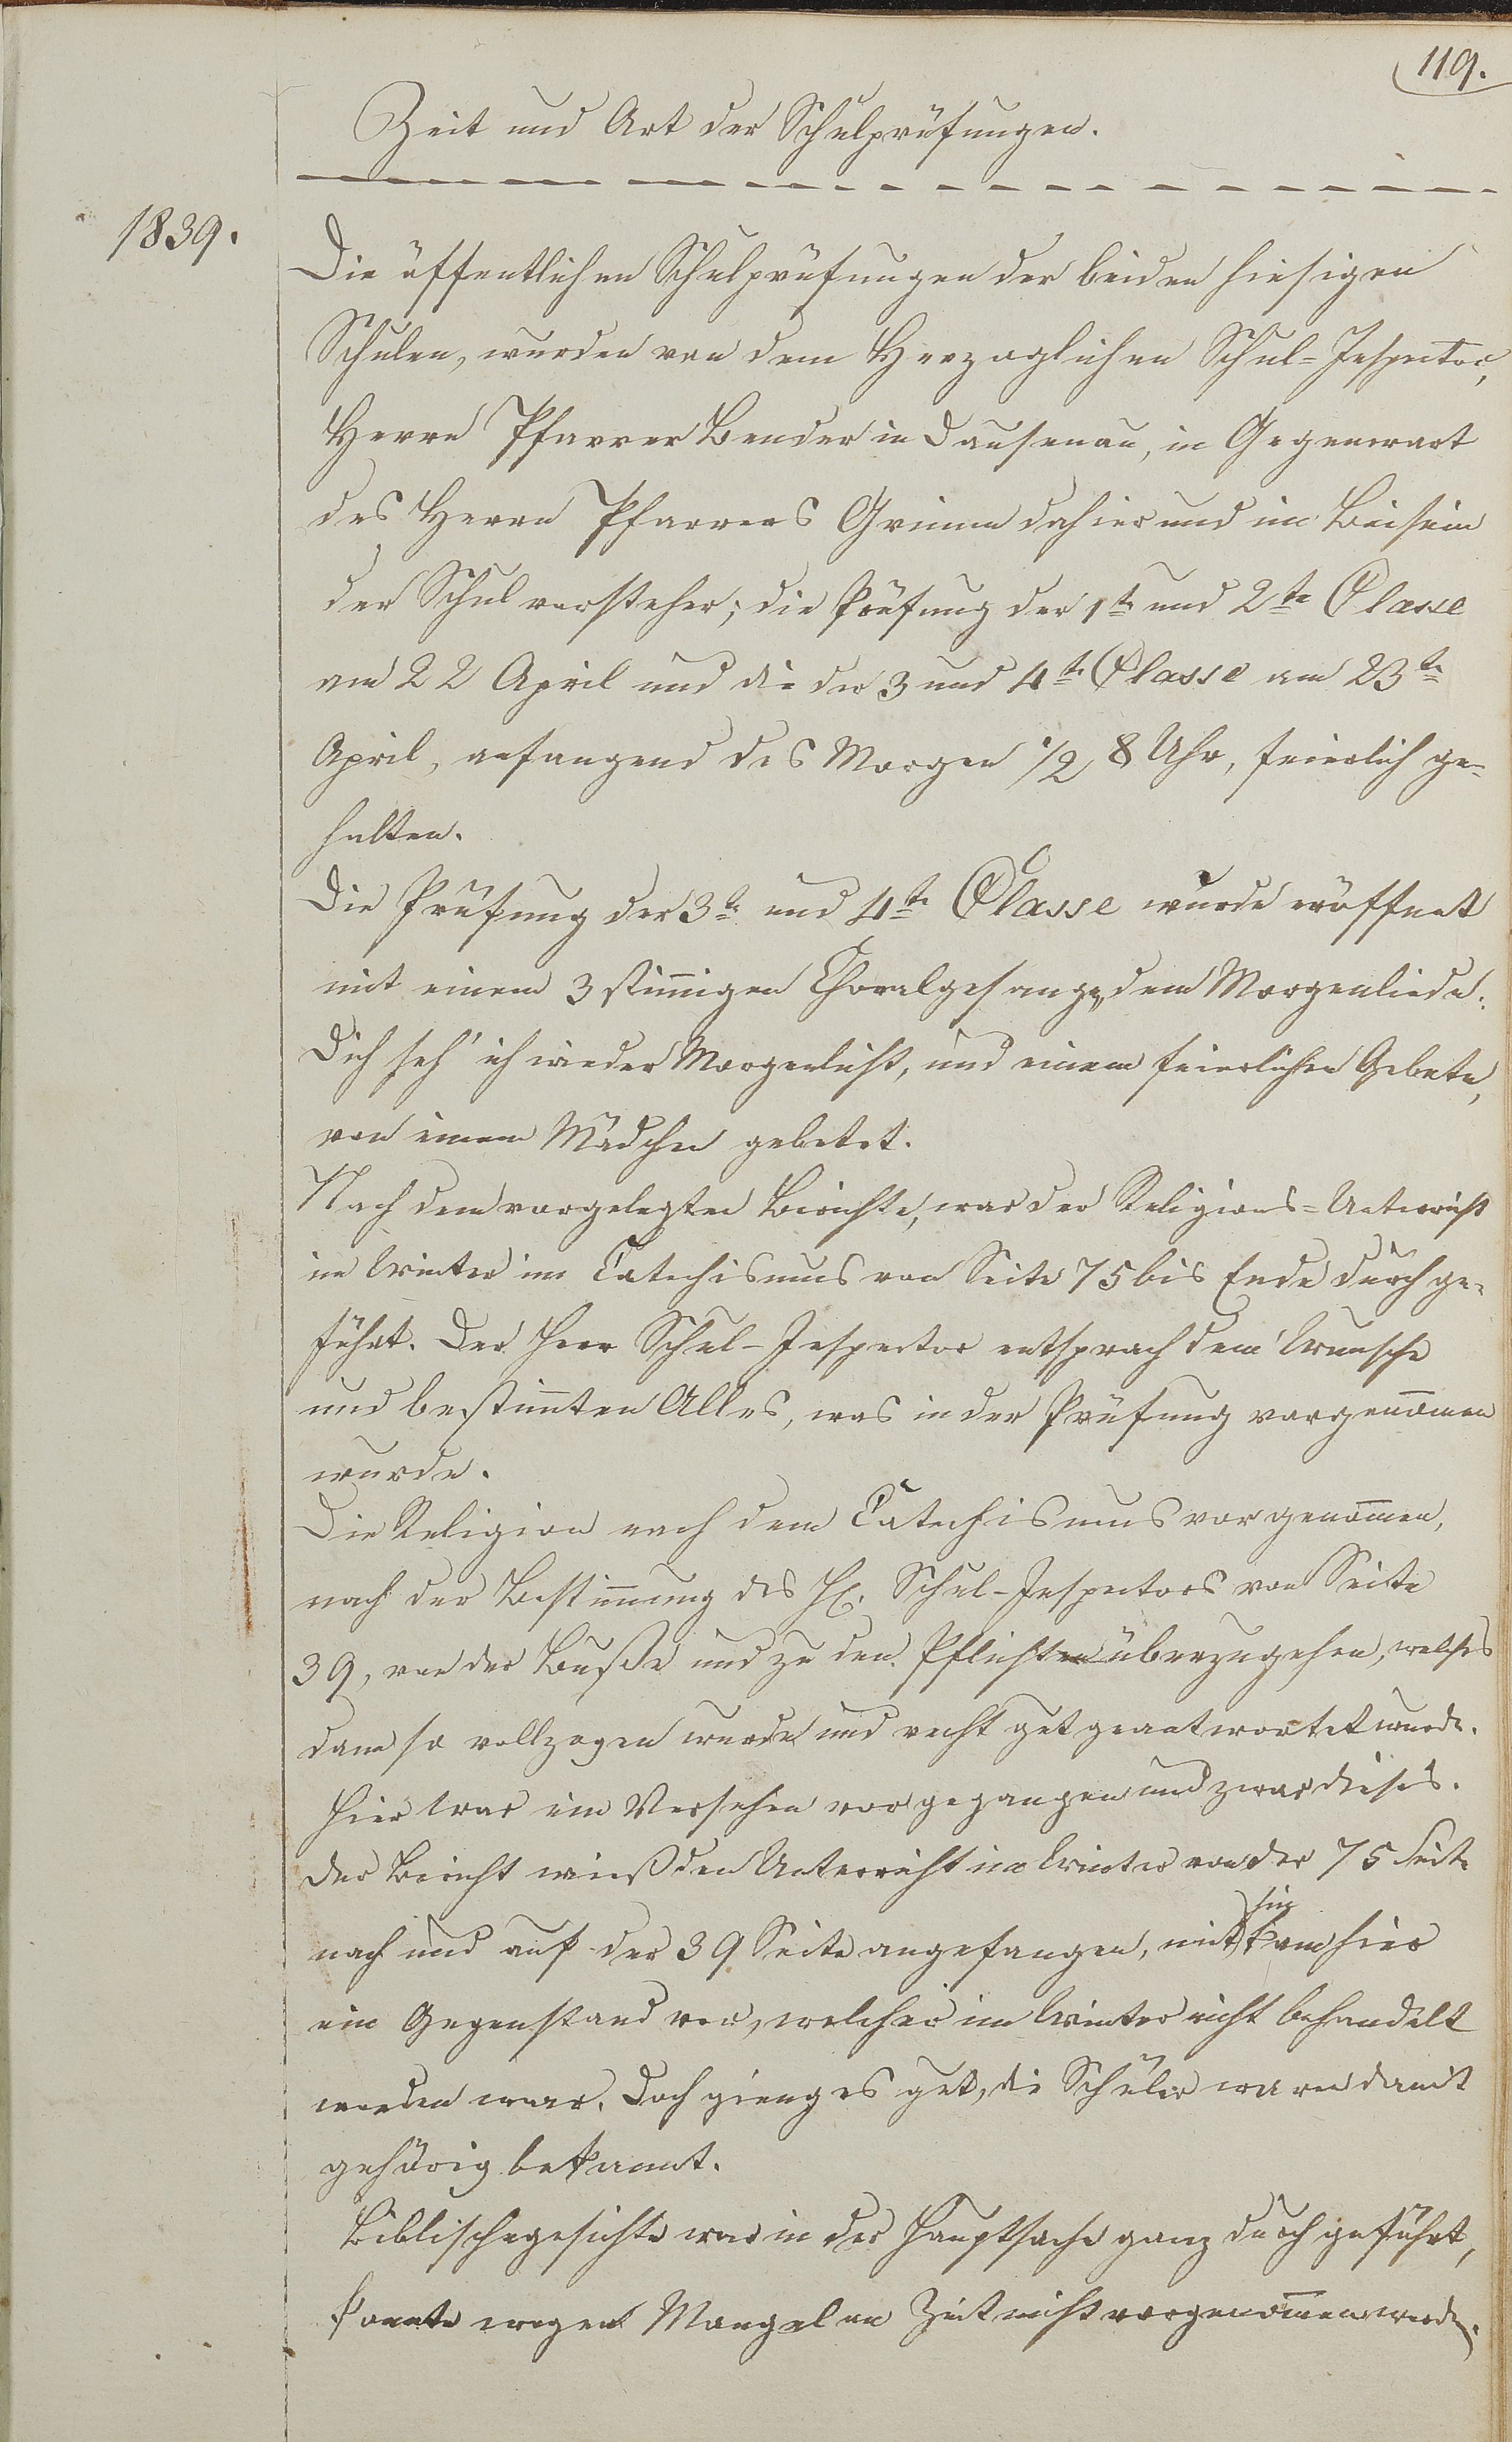 119.
Zeit und Art der Schulprüfungen.
1839.
Die öffentlichen Schulprüfungen der beiden hiesigen
Schulen, wurden von dem Herzoglichen Schul=Inspector,
Herrn Pfarrer Bender in Dausenau, in Gegenwart
des Herrn Pfarrers Grimm dahier und im Beisein
der Schulvorsteher; die Prüfung der 1te und 2te Classe
am 22 April und die der 3 und 4te Classe am 23te
April, anfangend des Morgen 1/2 8 Uhr, feierlich ge-
halten.
Die Prüfung der 3te und 4te Classe wurde eröffnet
mit einem 3 stim̅igen Choralgesange, dem Morgenliede:
Dich seh' ich wieder Morgenlicht, und einem feierlichen Gebete,
von einem Mädchen gebetet.
Nach dem vorgelegten Berichte, war der Religions=Unterricht
im Winter im Catechismus von Seite 75 bis Ende durchge-
führt. Der Herr Schul-Inspector entsprach dem Wunsche
und bestim̅ten Alles, was in der Prüfung vorgenom̅en
wurde.
Die Religion nach dem Catechismus vorgenom̅en,
nach der Bestim̅ung des H. Schul-Inspectors von Seite
39, von der Buße und zu den Pflichten überzugehen, welches
dann so vollzogen wurde und recht gut geantwortet wurde.
Hier war ein Versehen vorgegangen und zwar dieses.
Der Bericht wieß den Unterricht im Winter von der 75 Seite
nach und auf der 39 Seite angefangen, mithin kam hier
ein Gegenstand vor, welcher im Winter nicht behandelt
worden war. Doch gieng es gut, die Schüler waren damit
gehörig bekannt.
Biblischegesichte war in der Hauptsache ganz durchgeführt,
konnte wegen Mangel an Zeit nicht vorgenom̅en werden.